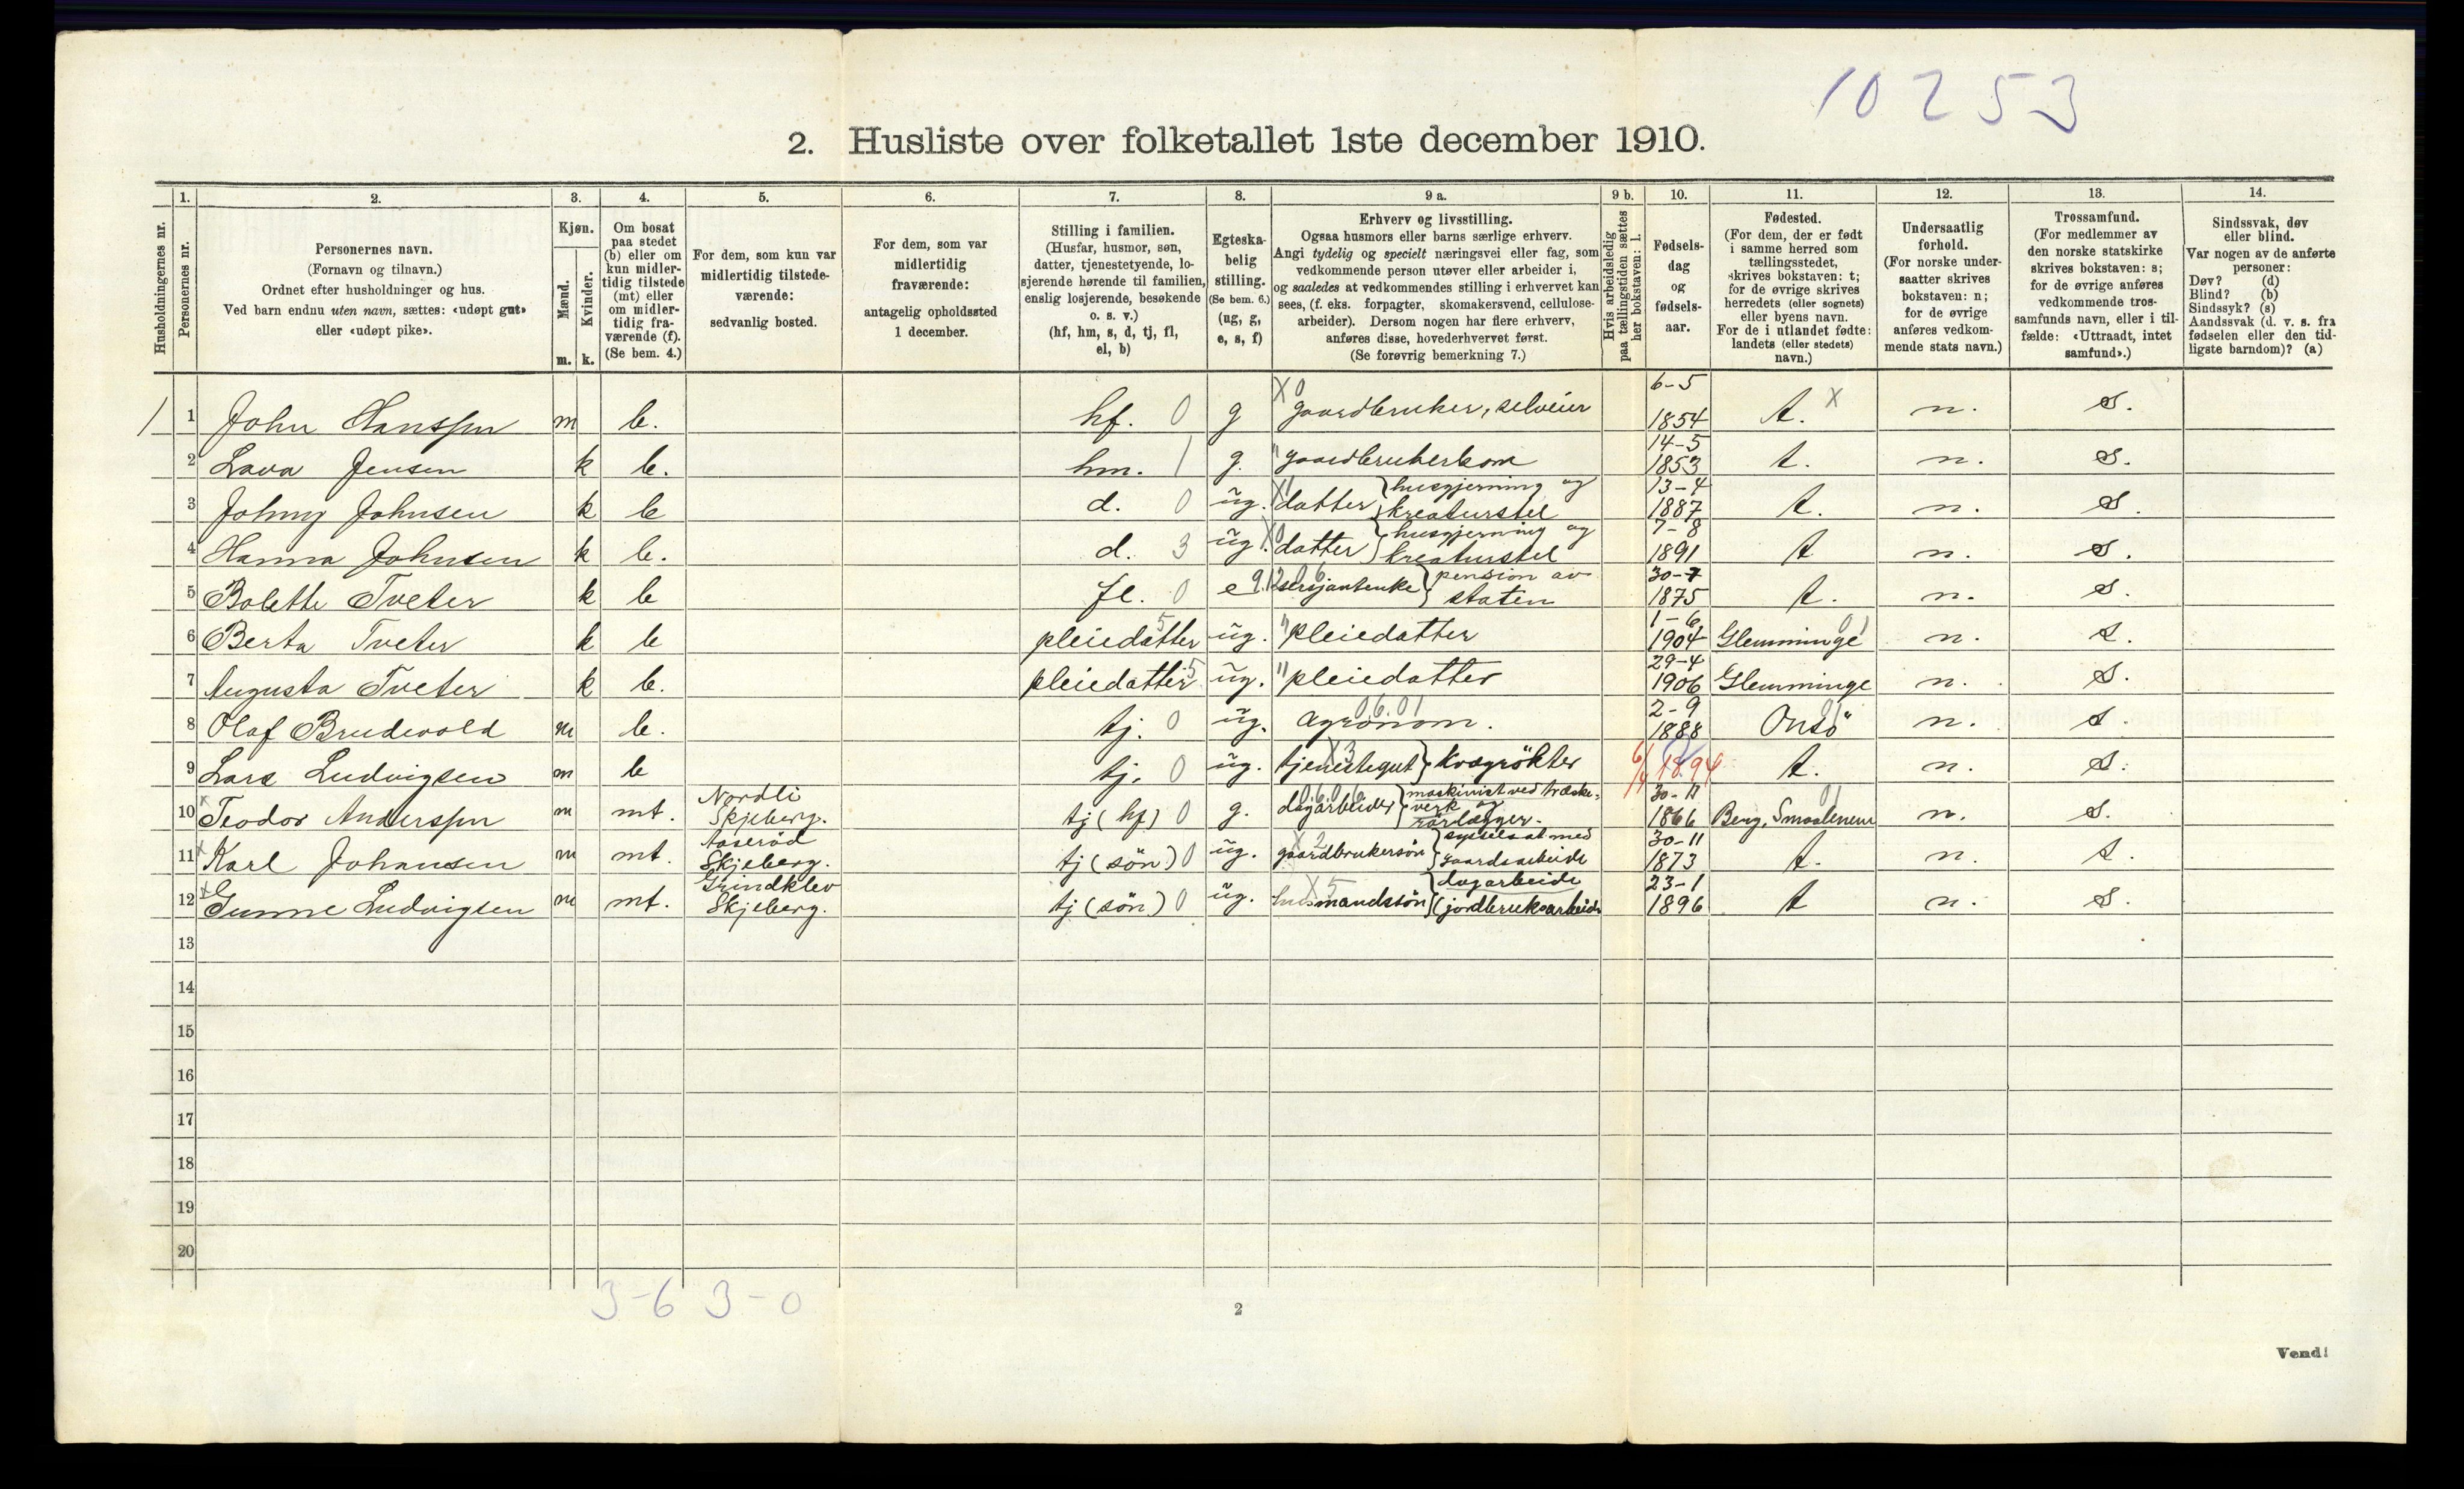 10253
2. Husliste over folketallet 1ste december 1910.
1. 2. 3. 4. 5. 6. 7. 8. 9 a. 9 b. 10. 11. 12. 13. 14.
Husholdningernes nr.
Personernes nr.
Personernes navn.
(Fornavn og tilnavn.)
Ordnet efter husholdninger og hus.
Ved barn endnu uten navn, sættes: «udøpt gut»
eller «udøpt pike».
Kjøn.
Mænd.
Kvinder.
m. k.
Om bosat
paa stedet
(b) eller om
kun midler-
tidig tilstede
(mt) eller
om midler-
tidig fra-
værende (f).
(Se bem. 4.)
For dem, som kun var
midlertidig tilstede-
værende:
sedvanlig bosted.
For dem, som var
midlertidig
fraværende:
antagelig opholdssted
1 december.
Stilling i familien.
(Husfar, husmor, søn,
datter, tjenestetyende, lo-
sjerende hørende til familien,
enslig losjerende, besøkende
o. s. v.)
(hf, hm, s, d, tj, fl,
el, b)
Egteska-
belig
stilling.
(Se bem. 6.)
(ug, g,
e, s, f)
Erhverv og livsstilling.
Ogsaa husmors eller barns særlige erhverv.
Angi tydelig og specielt næringsvei eller fag, som
vedkommende person utøver eller arbeider i,
og saaledes at vedkommendes stilling i erhvervet kan
sees, (f. eks. forpagter, skomakersvend, cellulose-
arbeider). Dersom nogen har flere erhverv,
anføres disse, hovederhvervet først.
(Se forøvrig bemerkning 7.)
Hvis arbeidsledig
paa tællingstiden sættes
her bokstaven: l.
Fødsels-
dag
og
fødsels-
aar.
Fødested.
(For dem, der er født
i samme herred som
tællingsstedet,
skrives bokstaven: t;
for de øvrige skrives
herredets (eller sognets)
eller byens navn.
For de i utlandet fødte:
landets (eller stedets)
navn.)
Undersaatlig
forhold.
(For norske under-
saatter skrives
bokstaven: n;
for de øvrige
anføres vedkom-
mende stats navn.)
Trossamfund.
(For medlemmer av
den norske statskirke
skrives bokstaven: s;
for de øvrige anføres
vedkommende tros-
samfunds navn, eller i til-
fælde: «Uttraadt, intet
samfund».)
Sindssvak, døv
eller blind.
Var nogen av de anførte
personer:
Døv? (d)
Blind? (b)
Sindssyk? (s)
Aandssvak (d. v. s. fra
fødselen eller den tid-
ligste barndom)? (a)
1 1 John Hanssen m b. hf. 0 g X0 gaardbruker, selveier 6-5 1854 t. X n. s.
2 Lava Jensen k b. hm. 1 g. " gaardbrukerkone 14-5 1853 t. n. s.
3 Johny Johnsen k b d. 0 ug. X1 datter } husgjerning og kreaturstel 13-4 1887 t. n. s.
4 Hanna Johnsen k b. d. 3 ug. X0 datter } husgjerning og kreaturstel 7-8 1891 t n. s.
5 Bolette Tveter k b fl. 0 e 9.12.06 serjantenke } pension av staten 30-7 1875 t. n. s.
6 Berta Tveter k b pleiedatter 5 ug. " pleiedatter 1-6 1904 Glemminge 01 n. s.
7 Augusta Tveter k b. pleiedatter 5 ug. " pleiedatter 29-4 1906 Glemminge n. s.
8 Olaf Brudevold m b. tj. 0 ug. 06.01 agronom. 2-9 1888 Onsö 01 n. s.
9 Lars Ludvigsen m b tj. 0 ug. X3 tjenestegut } Kvægrökter 1894 t. n. s.
10 X Teodor Anderssen m mt. Nordli Skjeberg. tj (hf) 0 g. dagarbeider } maskinist ved træske-verk og rörlægger. 30-11 1866 Berg, Smaalenene 01 n. s.
11 X Karl Johansen m mt. Aaseröd Skjeberg. tj (sön) 0 ug. X2 gaardbrukersön } sysselsat med gaardsarbeide 30-11 1873 t. n. s.
12 X Gunne Ludvigsen m mt. Grindklev Skjeberg. tj (sön) 0 ug. X5 husmandssön } dagarbeide (jordbruksarbeide 23-1 1896 t n. s.
13
14
15
16
17
18
19
20
3-6 3-0
2
Vend!